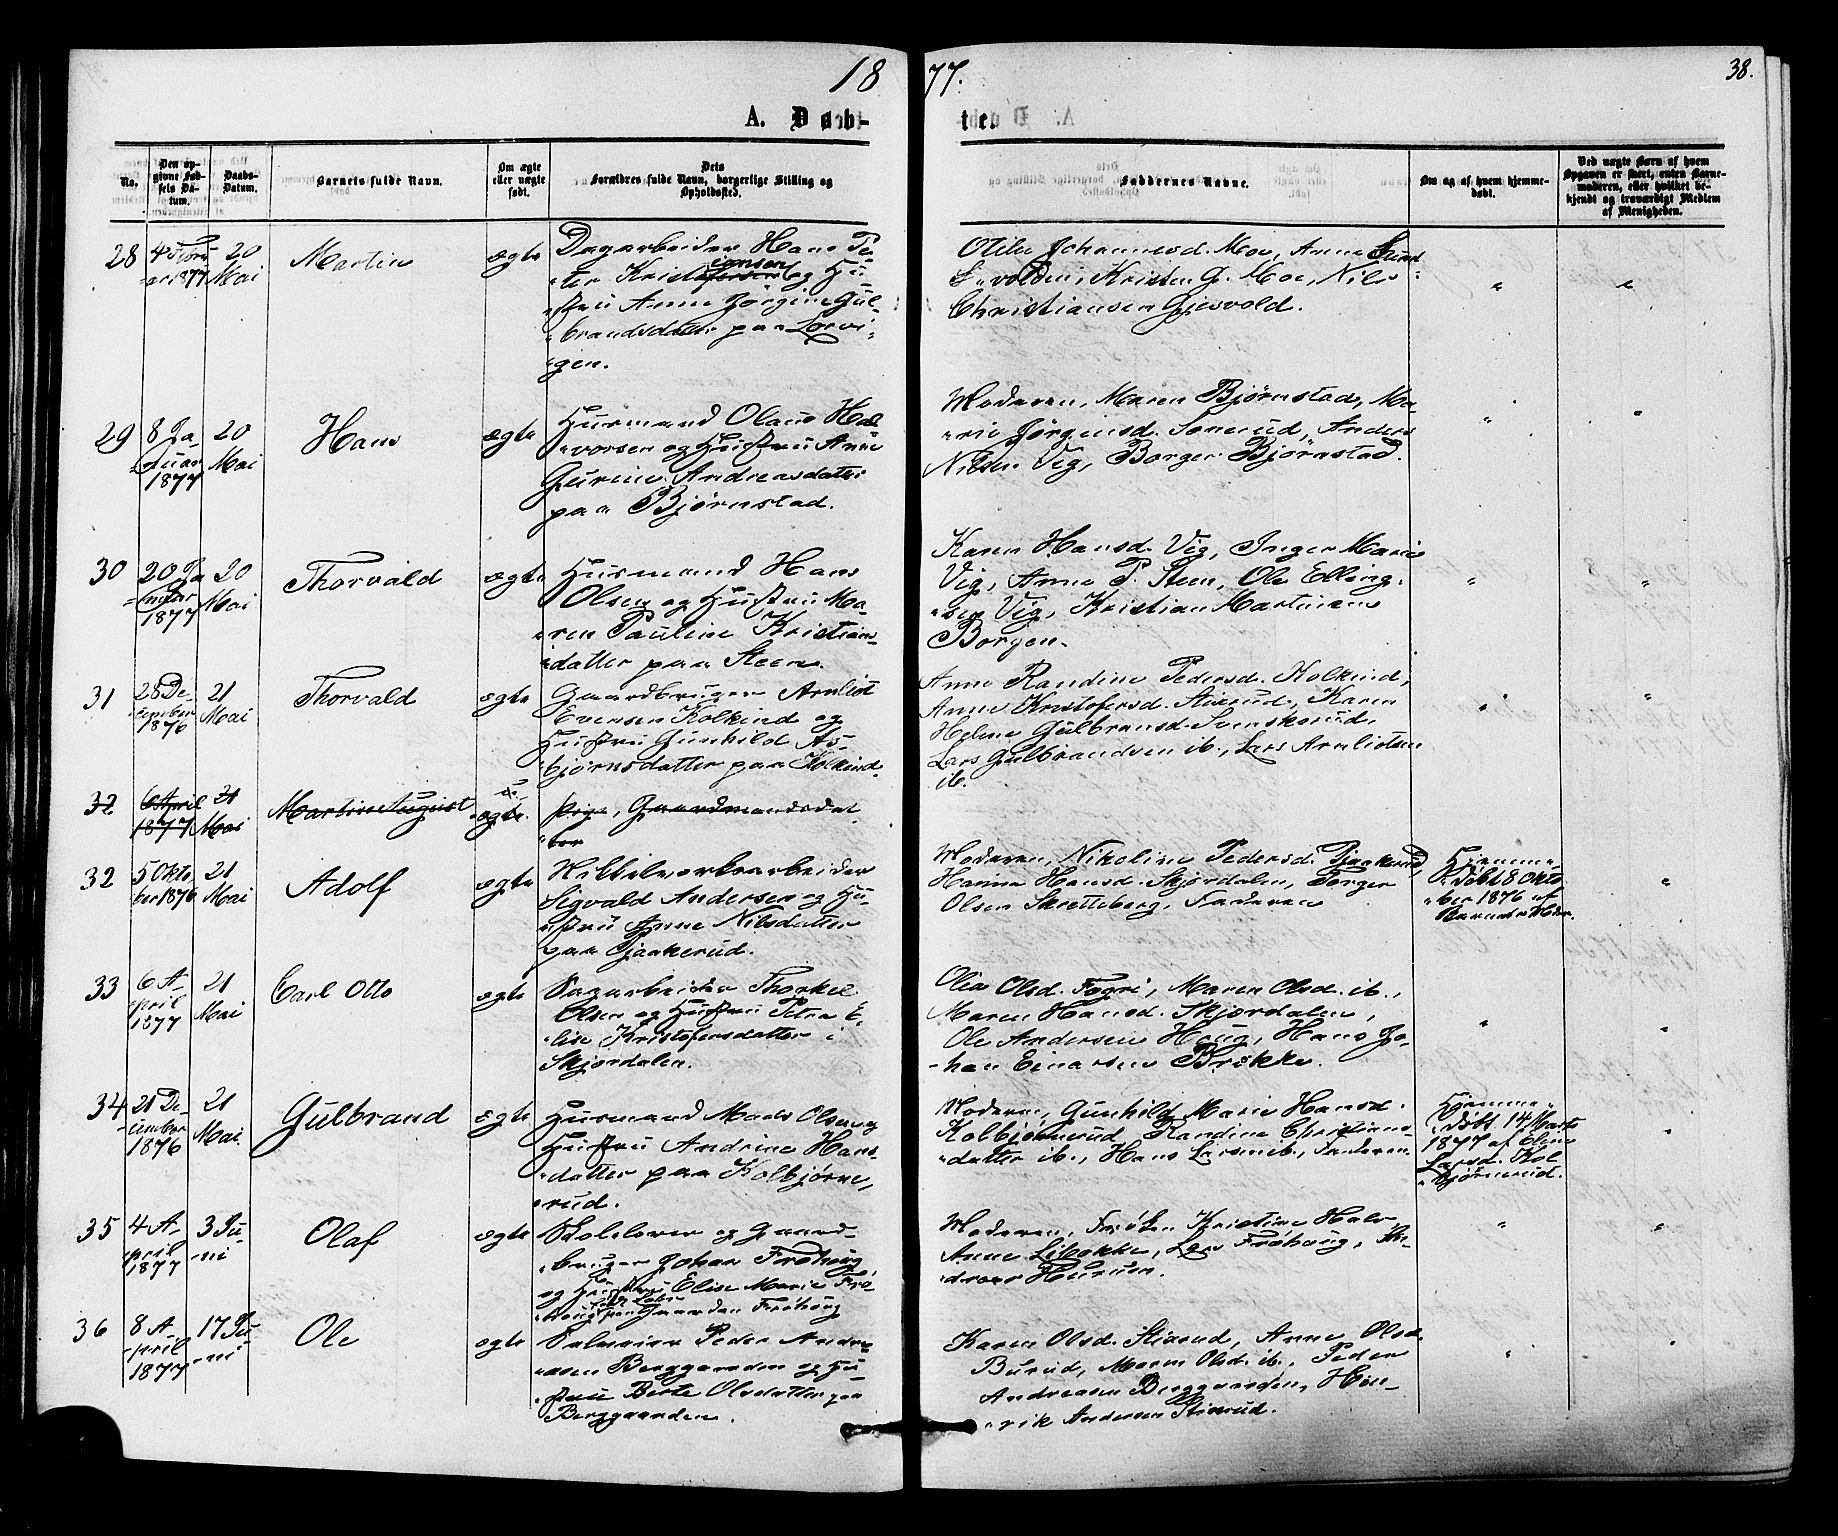 18 77.
38.
A. Døb- te.
No.
Den op-
givne Fød-
sels Da-
tum.
Daabs-
Datum.
Barnets fulde Navn.
Om ægte
eller uægte
født.
Dets
Forældres fulde Navn, borgerlige Stilling og
Opholdssted.
Faddernes Navne.
Om og af hvem hjemme-
døbt.
Ved uægte Børn af hvem
Opgaven er skeet, enten Barne-
moderen, eller hvilket be-
kjendt og troværdigt Medlem
af Menigheden.
28
4 Febru
ar 1877
20
Mai
Martin
ægte
Dagarbeider Hans Pe
ter Kristiansen og Hu
stru Anne Jørgine Gul
brandsdatter paa Lorvi
gen.
Johannesd. Moe, Anne
Kristen G. Moe, Nils
Christiansen Gjesvold.
"
"
29
8 Ja-
nuar
1877
20
Mai
Hans
ægte
Husmand Olaus Hal
vorsen og Hustru Anne
Gurine Andreasdatter
paa Bjørnstad.
Moderen, Maren Bjørnstad, Ma-
rie Jørgensd. Sonerud, Anders
Nilsen Vig, Borger Bjørnstad.
"
"
30
20 Ja
nuar
1877
20
Mai
Thorvald
ægte
Husmand Hans
Olsen og Hustru Ma-
ren Pauline Kristians
datter paa Steen.
Karen Hansd. Vig, Inger Marie
Vig, Anne P. Steen, Ole Elling-
sen Vig, Kristian Martinsen
Borgen.
"
"
31
28 De-
cember
1876
21
Mai
Thorvald
ægte
Gaardbruger Arnliot
Evensen Kolkind og
Hustru Gunhild As-
bjørnsdatter paa Kolkind.
Anne Randine Pedersd. Kolkind,
Anne Kristofersd. Stixrud, Karen
Helene Gulbransd. Svenskerud,
Lars Gulbrandsen ib., Lars Arnliotsen
ib.
"
"
32
6 April
1877
21
Mai
Martin August
u-
ægte.
Pige, Gaardmandsdat
ter
32
5 Okto
ber 1876
21
Mai
Adolf
ægte
Nikkelverksarbeider
Sigvald Andersen og Hu-
stru Anne Nilsdatter
paa Tjaakerud.
Moderen, Nikoline Pedersd. Tjaakerud,
Hansd. Skjørdalen, Torger
Olsen Skretteberg, Faderen
Hjemme-
døbt 8 Okto
ber 1876 af
Barnets Moder.
"
33
6 A-
pril
1877
21
Mai
Carl Otto
ægte
Sagarbeider Thorkel
Olsen og Hustru Petra E-
lise Kristofersdatter i
Skjørdalen.
Olea Olsd. Fagri, Maren Olsd. ib.,
Maren Hansd. Skjørdalen,
Ole Andersen Houg, Hans Jo-
han Einarsen Brøkke.
"
"
34
21 De-
cember
1876
21
Mai.
Gulbrand
ægte
Husmand Mads Olsen og
Hustru Andrine Hans
datter paa Kolbjørns-
rud.
Moderen, Gunhild Marie Hansd.
Kolbjørnsrud, Randine Christians-
datter ib., Hans Larsen ib., Faderen.
Hjemme-
døbt 14 Marts
1877 af Eline
Larsd. Kol
bjørnsrud.
"
35
4 A-
pril
1877
3 Ju-
ni
Olaf
ægte
Skolelærer og Gaard-
bruger Johan Frøhoug
og Hustru Elise Marie Frø
houg født Lobe
paa Gaarden Frøhoug
Moderen, Frøken Kristine
Anne Libakke, Lars Frøhoug, An-
dreas Hurum.
"
"
36
8 A-
pril
1877
17 Ju-
ni
Ole
ægte
Selveier Peder Andre-
asen Berggaarden og Hu-
stru Berte Olsdatter paa
Berggaarden.
Karen Olsd. Stixrud, Anne Olsd.
Burud, Maren Olsd. ib., Peder
Andreasen Berggaarden, Hen-
rik Andersen Stixrud.
"
"